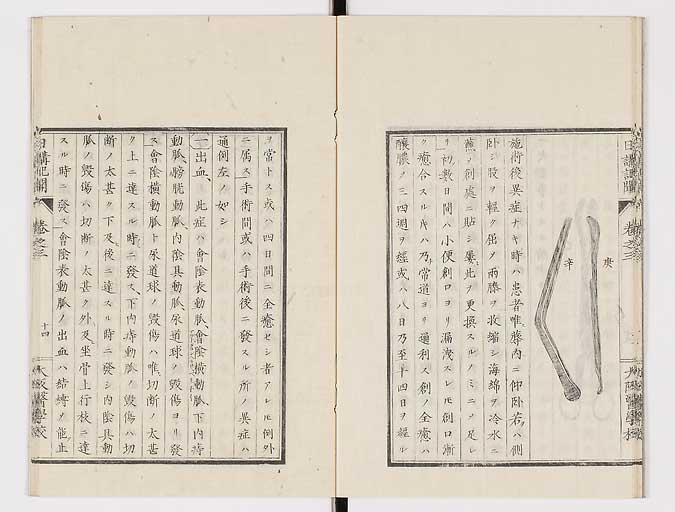 庚
辛
施術後異症ナキ時ハ患者唯蓐内ニ仰卧若ハ側
卧シ股ヲ輕ク屈ヲ兩膝ヲ收縮シ海綿ヲ冷水ニ
蘸シ創處ニ貼シ屡此ヲ更換スルノミニ〆足レ
リ初數日間ハ小便創口ヨリ漏洩スレ𪜈創口漸
ク癒合スルキハ乃常道ヨリ通利ス創ノ全癒ハ
釀膿ノ三四週ヲ經或ハ八日乃至十四日ヲ經ル
ヲ常トス或ハ四日間ニ全癒セシ者アレ𪜈例外
ニ属ス手術間或ハ手術後ニ發スル所ノ異症ハ
通例左ノ如シ
一出血 此症ハ會陰表動脈會陰横動脈下内痔
動脈膀胱動脈内陰具動脈尿道球ノ毀傷ヨリ發
ス會陰横動脈ト尿道球ノ毀傷ハ唯切断ノ太甚
ク上ニ達スル時ニ發ス下内痔動脈ノ毀傷ハ切
断ノ太甚ク下及後ニ達スル時ニ發シ内陰具動
脈ノ毀傷ハ切断ノ太甚ク外及坐骨上行枝ニ達
スル時ニ發ス會陰表動脈ノ出血ハ結縛ヲ能止
日講記聞
卷之三
十四
大阪醫學校